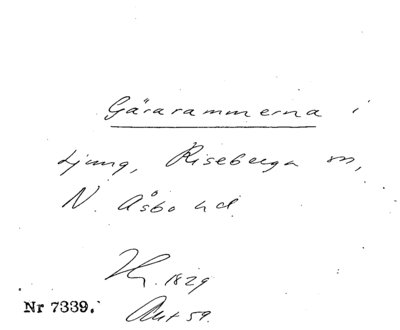 Gärarammerna i
Ljung, Riseberga sn,
N. Åsbo hd.
1829
Nr 7339.
Akt 59.